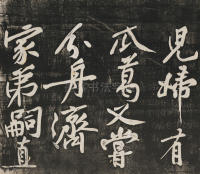 兒婦有
瓜葛又嘗
分舟濟
家弟嗣直